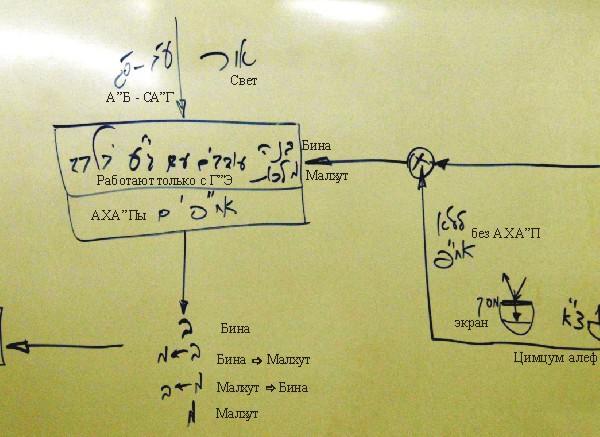 אור
ע"ב - ס"ג
Свет
А"Б - СА"Г
בינה
Бина
עובדים עם ג"ע בלבד
מלכות
Работают только с Г"Э
Малхут
АХА"Пы אח"פ ים
ללא
без АХА"П
אח"פ
מסך
צ"א
экран
Цимцум алеф
ב Бина
ב → מ Бина ⇨ Малхут
מ → ב Малхут ⇨ Бина
מ Малхут